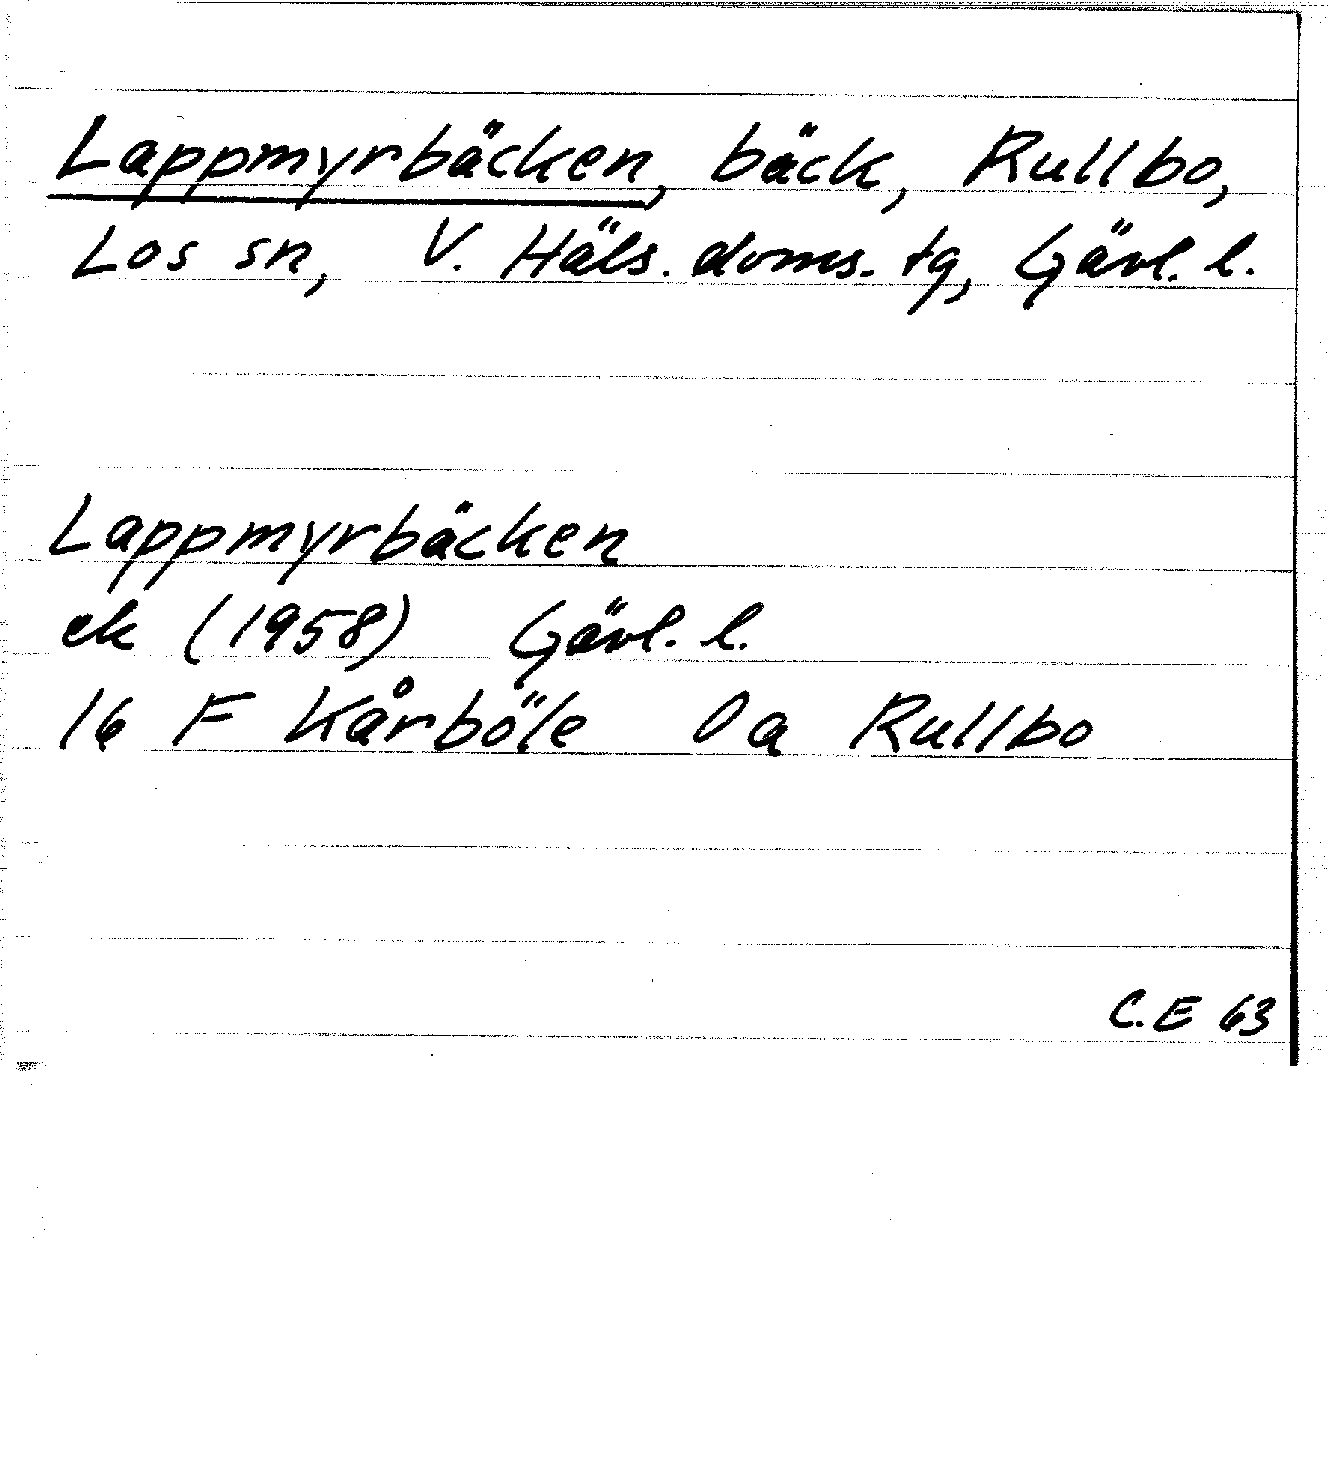 Lappmyrbäcken, bäck, Rullbo,
Los sn, V. Häls. doms. tg, Gävl. l.
Lappmyrbäcken
ek (1958) Gävl. l.
16 F Kårböle 0 a Rullbo
C.E 63